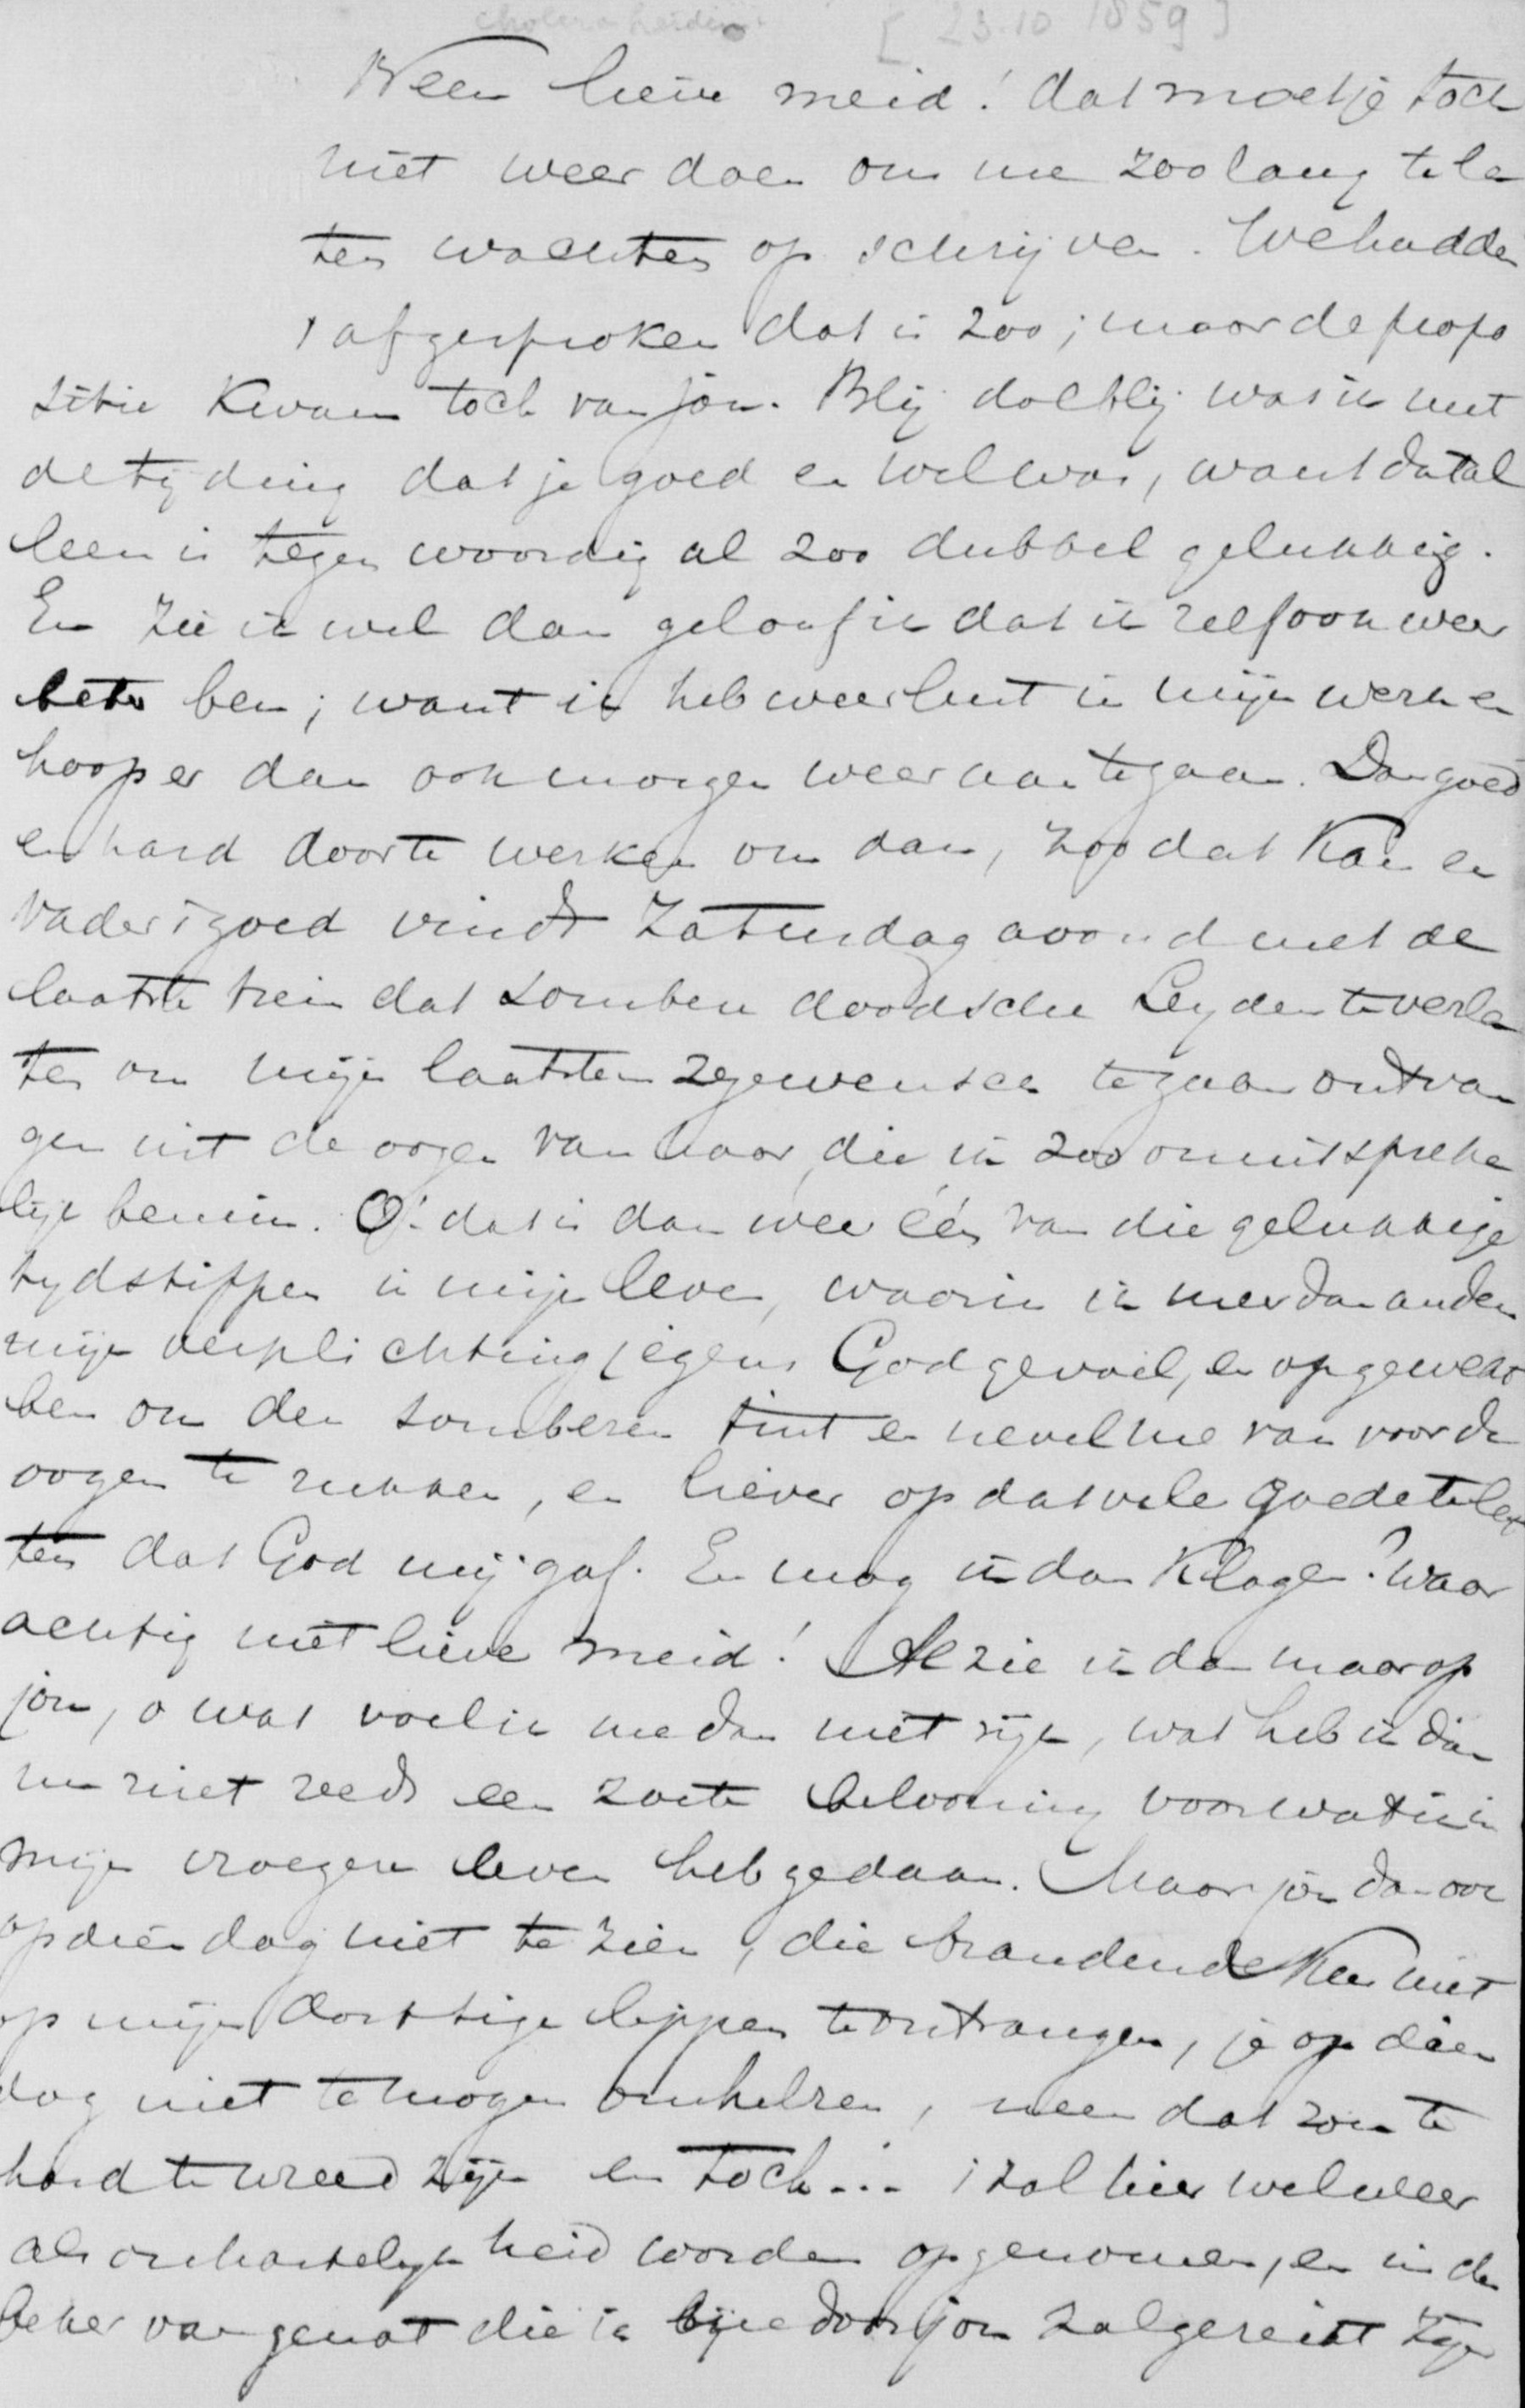 cholera Leiden [23.10 1859]
Neen lieve meid! dat moet je toch
niet weer doen om me zoo lang te la
ten wachten op schrijven. We hadden
't afgesproken dat is zoo; maar de propo
sitie kwam toch van jou. Blij dolblij was ik met
de tijding dat je goed en wel was, want dat al
leen is tegenwoordig al zoo dubbel gelukkig.
En zie ik wel dan geloof ik dat ik zelf ook weer
beter ben; want ik heb weer lust in mijn werk en
hoop er dan ook morgen weer aan te gaan. Dan goed
en hard door te werken om dan, zoo dat kan en
Vader 't goed vindt Zaturdag avond met de
laatste trein dat sombere doodsche Leyden te verla
ten om mijn laatsten zegewensch te gaan ontvan
gen uit de oogen van haar, die ik zoo onuitspreke
lijk bemin. O! dat is dan weer één van die gelukkige
tydstippen in mijn leven, waarin ik meer dan anders
mijn verplichting jegens God gevoel, en opgewekt
ben om den somberen tint en nevel me van voor de
oogen te rukken, en liever op dat vele goede te let
ten dat God mij gaf. En mag ik dan klagen? waar
achtig niet lieve meid! Al zie ik dan maar op
jou, o wat voel ik me dan niet rijk, wat heb ik dan
nu niet reeds een zoete belooning voor wat ik in
mijn vroeger leven heb gedaan. Maar jou dan ook
op dien dag niet te zien, die brandende kus niet
op mijn dorstige lippen te ontvangen, je op dien
dag niet te mogen omhelzen, neen dat zou te
hard te wreed zijn en toch... 't zal hier wel weer
als onhartelijkheid worden opgenomen, en in den
beker van genot die ik door jou zal gereikt zijn